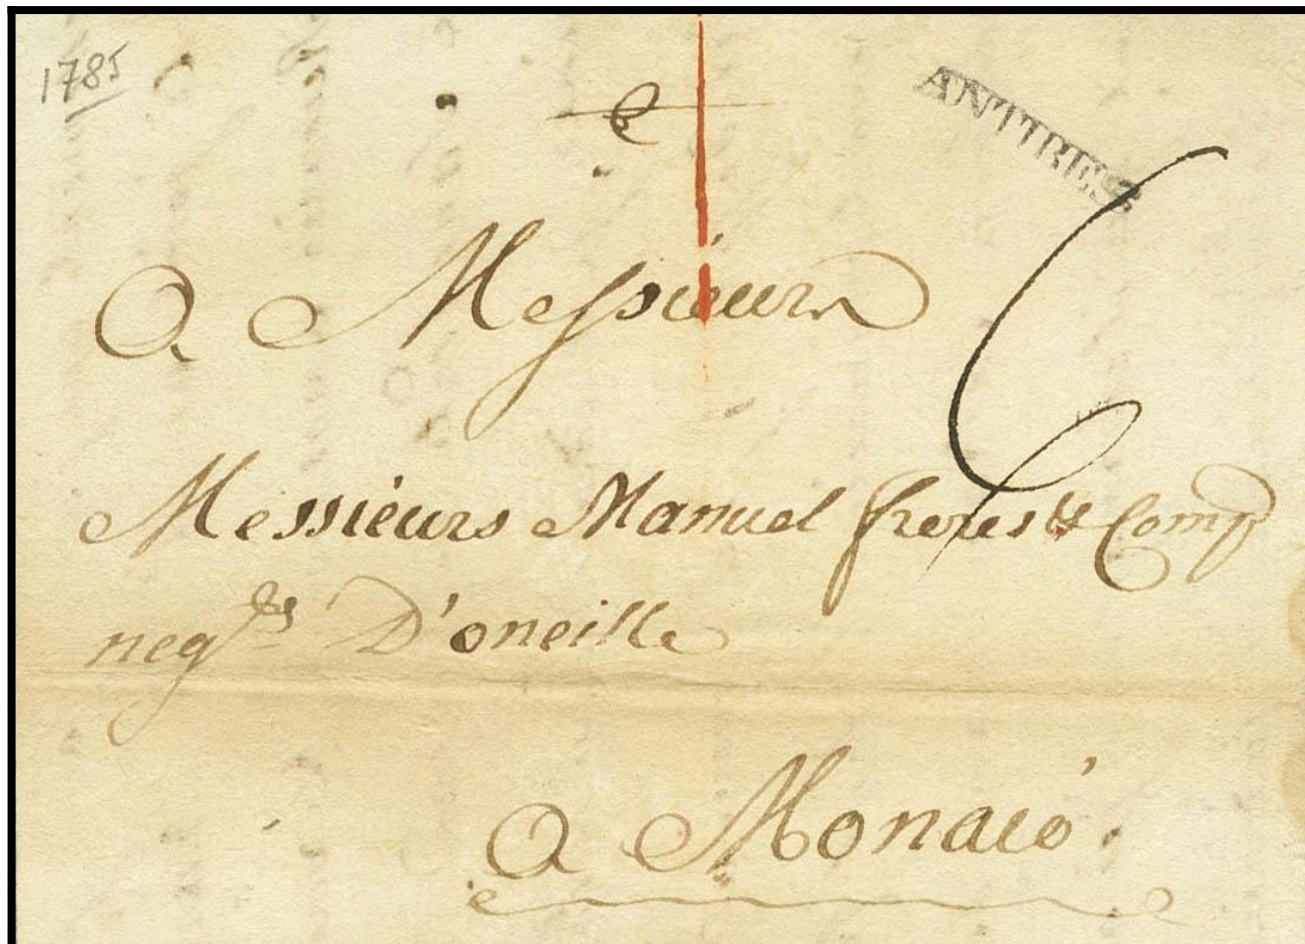 1785
ANTIBES
6
A Messieurs
Messieurs Manuel freres & Comp
negts D'oneille
A Monaco